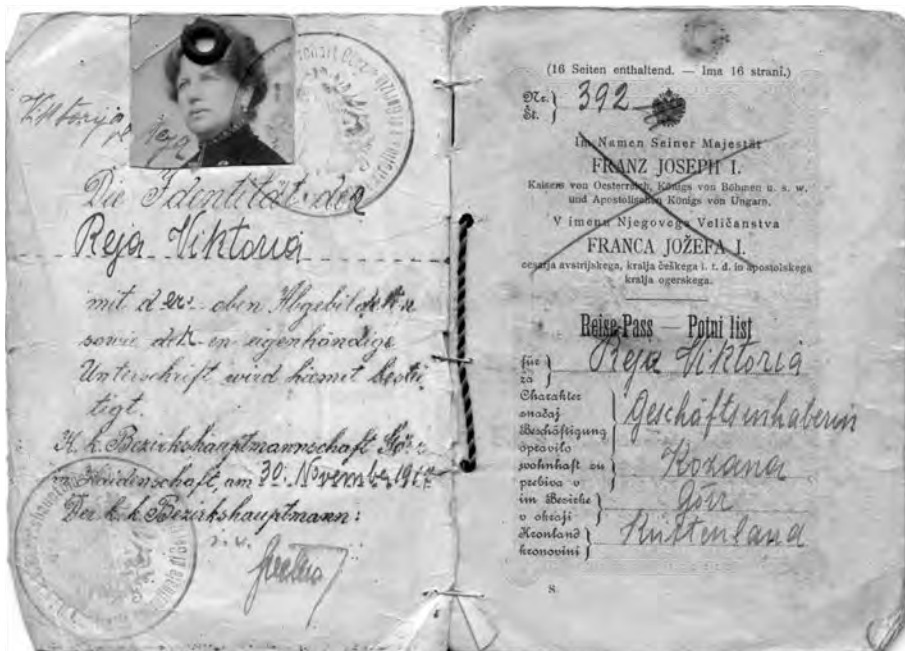 Viktorija
Reja
Die Identität der
Reja Viktoria
mit der oben Abgebildeten
sowie der-en eigenhändige
Unterschrift wird hiemit bestä-
tigt.
K. k. Bezirkshauptmannschaft Gör
in Haidenschaft, am 30. November 1917
Der k. k. Bezirkshauptmann:
(16 Seiten enthaltend. — Ima 16 strani.)
Nr. } 392
Št.
Im Namen Seiner Majestät
FRANZ JOSEPH I.
Kaisers von Oesterreich, Königs von Böhmen u. s. w.
und Apostolischen Königs von Ungarn.
V imenu Njegovega Veličanstva
FRANCA JOŽEFA I.
cesarja avstrijskega, kralja češkega i. t. d. in apostolskega
kralja ogerskega.
Reise-Pass — Potni list
für } Reja Viktoria
za
Charakter
značaj
Beschäftigung } Geschäftsinhaberin
opravilo
wohnhaft zu } Kozana
prebiva v
im Bezirke } Görz
v okraji
Kronland } Küstenland
kronovini
8